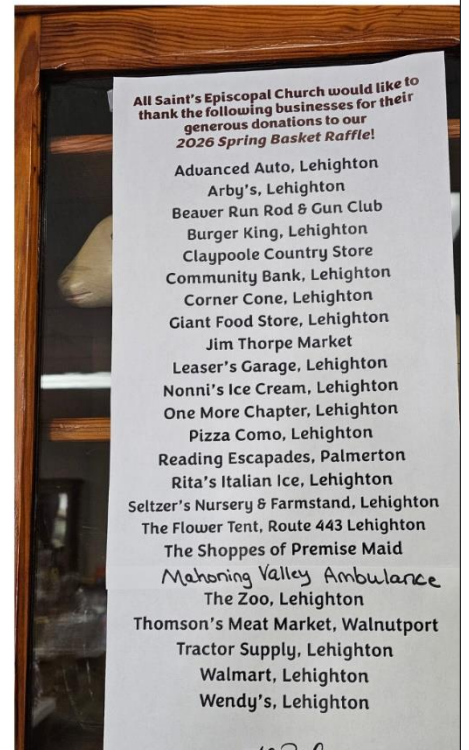 All Saint's Episcopal Church would like to
thank the following businesses for their
generous donations to our
2026 Spring Basket Raffle!
Advanced Auto, Lehighton
Arby's, Lehighton
Beaver Run Rod & Gun Club
Burger King, Lehighton
Claypoole Country Store
Community Bank, Lehighton
Corner Cone, Lehighton
Giant Food Store, Lehighton
Jim Thorpe Market
Leaser's Garage, Lehighton
Nonni's Ice Cream, Lehighton
One More Chapter, Lehighton
Pizza Como, Lehighton
Reading Escapades, Palmerton
Rita's Italian Ice, Lehighton
Seltzer's Nursery & Farmstand, Lehighton
The Flower Tent, Route 443 Lehighton
The Shoppes of Premise Maid
Mahoning Valley Ambulance
The Zoo, Lehighton
Thomson's Meat Market, Walnutport
Tractor Supply, Lehighton
Walmart, Lehighton
Wendy's, Lehighton